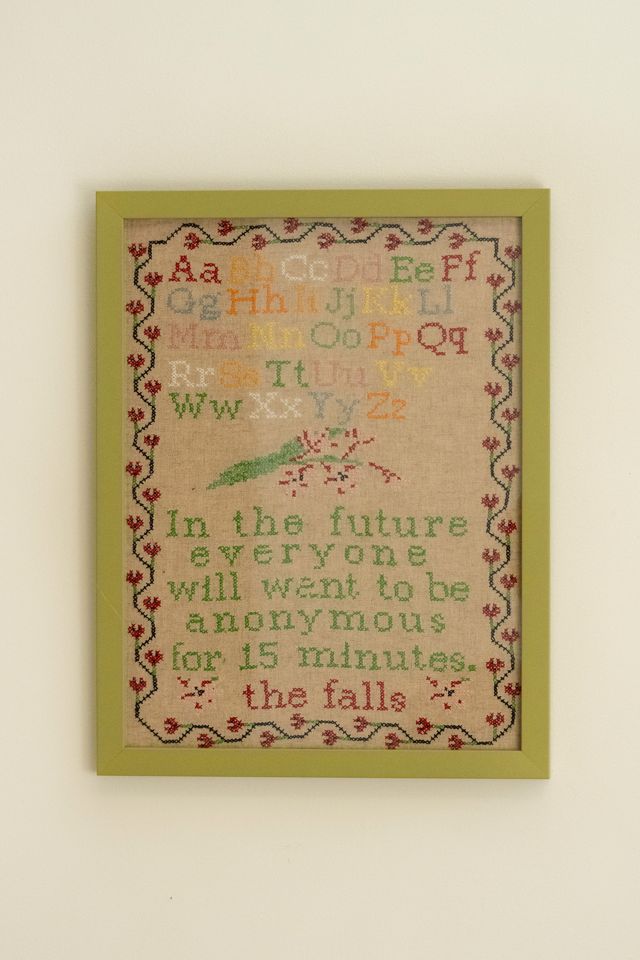 Aa Bb Cc Dd Ee Ff
Gg Hh Ii Jj Kk Ll
Mm Nn Oo Pp Qq
Rr Ss Tt Uu Vv
Ww Xx Yy Zz
In the future
everyone
will want to be
anonymous
for 15 minutes.
the falls